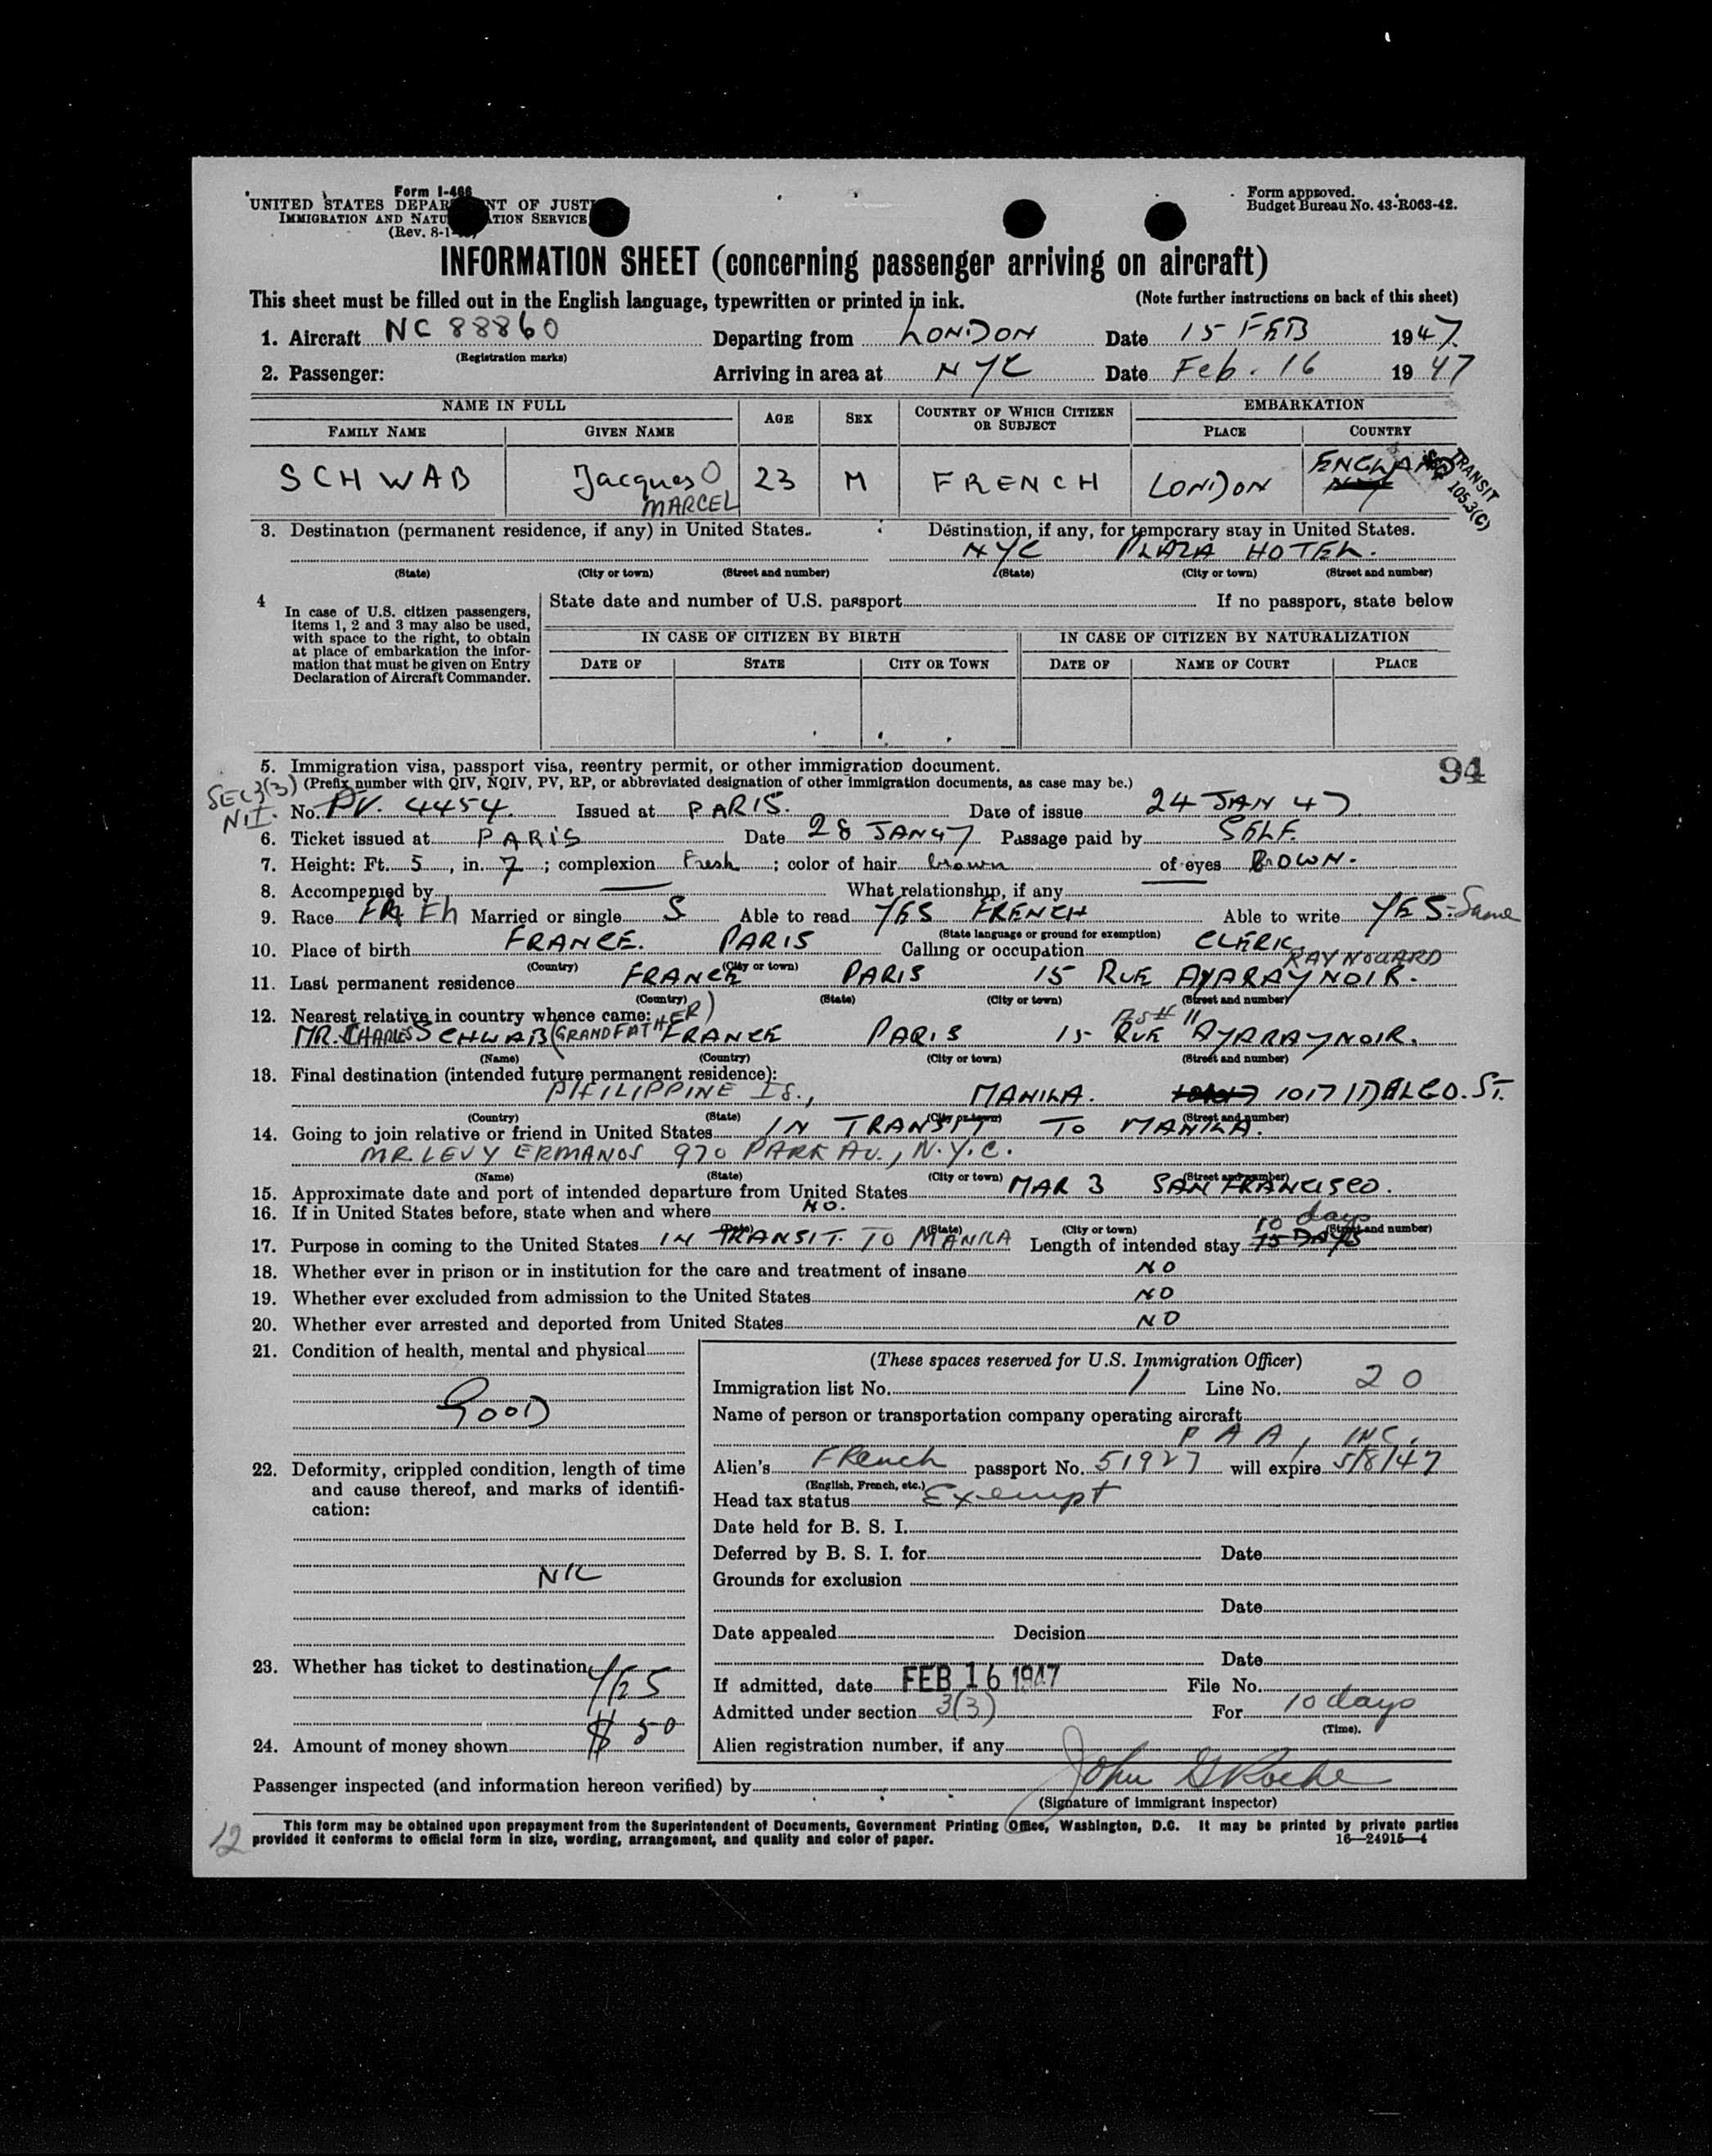 Form I-466
UNITED STATES DEPAR NT OF JUST
IMMIGRATION AND NATU ATION SERVICE
(Rev. 8-1-
Form approved.
Budget Bureau No. 43-R063-42.
INFORMATION SHEET (concerning passenger arriving on aircraft)
This sheet must be filled out in the English language, typewritten or printed in ink. (Note further instructions on back of this sheet)
1. Aircraft NC 88860 Departing from LONDON Date 15 FEB 1947.
(Registration marks)
2. Passenger: Arriving in area at NYC Date Feb. 16 1947
NAME IN FULL AGE SEX COUNTRY OF WHICH CITIZEN OR SUBJECT EMBARKATION
FAMILY NAME GIVEN NAME PLACE COUNTRY
SCHWAB Jacques O 23 M FRENCH LONDON ENGLAND
MARCEL
TRANSIT
105.3(C)
3. Destination (permanent residence, if any) in United States. Destination, if any, for temporary stay in United States.
NYC PLAZA HOTEL.
(State) (City or town) (Street and number) (State) (City or town) (Street and number)
4 In case of U.S. citizen passengers, items 1, 2 and 3 may also be used, with space to the right, to obtain at place of embarkation the information that must be given on Entry Declaration of Aircraft Commander.
State date and number of U.S. passport If no passport, state below
IN CASE OF CITIZEN BY BIRTH IN CASE OF CITIZEN BY NATURALIZATION
DATE OF STATE CITY OR TOWN DATE OF NAME OF COURT PLACE
5. Immigration visa, passport visa, reentry permit, or other immigration document. 94
(Prefix number with QIV, NQIV, PV, RP, or abbreviated designation of other immigration documents, as case may be.)
SEC 3(3)
N.I.
No. PV. 4454. Issued at PARIS. Date of issue 24 JAN 47
6. Ticket issued at PARIS Date 28 JAN 47 Passage paid by SELF.
7. Height: Ft. 5, in. 7; complexion Fresh; color of hair brown of eyes BROWN.
8. Accompanied by — What relationship, if any —
9. Race FR Eh Married or single S Able to read YES FRENCH Able to write YES. Same
(State language or ground for exemption)
10. Place of birth FRANCE. PARIS Calling or occupation CLERK
(Country) (City or town) RAYNOUARD
11. Last permanent residence FRANCE PARIS 15 RUE AYARAYNOIR.
(Country) (State) (City or town) (Street and number)
12. Nearest relative in country whence came: As # 11
MR. CHARLES SCHWAB (GRANDFATHER) FRANCE PARIS 15 RUE AYRRAYNOIR.
(Name) (Country) (City or town) (Street and number)
13. Final destination (intended future permanent residence):
PHILIPPINE IS., MANILA. 1017 IDALGO. ST.
(Country) (State) (City or town) (Street and number)
14. Going to join relative or friend in United States IN TRANSIT TO MANILA.
MR. LEVY ERMANOS 970 PARK AV., N.Y.C.
(Name) (State) (City or town) (Street and number)
15. Approximate date and port of intended departure from United States MAR 3 SAN FRANCISCO.
16. If in United States before, state when and where NO.
(Date) (State) (City or town) (Street and number)
10 days
17. Purpose in coming to the United States IN TRANSIT TO MANILA Length of intended stay 15 DAYS
18. Whether ever in prison or in institution for the care and treatment of insane NO
19. Whether ever excluded from admission to the United States NO
20. Whether ever arrested and deported from United States NO
21. Condition of health, mental and physical
GOOD
22. Deformity, crippled condition, length of time and cause thereof, and marks of identification:
NIL
23. Whether has ticket to destination YES
24. Amount of money shown $ 50
(These spaces reserved for U.S. Immigration Officer)
Immigration list No. 1 Line No. 20
Name of person or transportation company operating aircraft
P A A, INC.
Alien's French passport No. 51927 will expire 5/8/47
(English, French, etc.)
Head tax status Exempt
Date held for B. S. I.
Deferred by B. S. I. for Date
Grounds for exclusion
Date
Date appealed Decision
Date
If admitted, date FEB 16 1947 File No.
Admitted under section 3(3) For 10 days
(Time).
Alien registration number, if any
Passenger inspected (and information hereon verified) by John G Roche
(Signature of immigrant inspector)
This form may be obtained upon prepayment from the Superintendent of Documents, Government Printing Office, Washington, D.C. It may be printed by private parties
12 provided it conforms to official form in size, wording, arrangement, and quality and color of paper. 16—24915-4